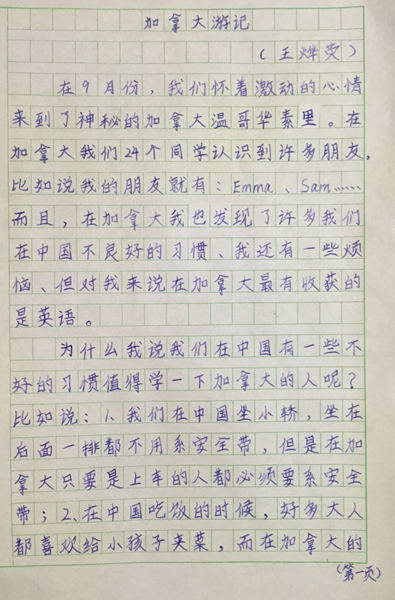 加拿大游记
（王烨荧）
在9月份，我们怀着激动的心情
来到了神秘的加拿大温哥华素里。在
加拿大我们24个同学认识到许多朋友，
比如说我的朋友就有：Emma、Sam……
而且，在加拿大我也发现了许多我们
在中国不良好的习惯、我还有一些烦
恼、但对我来说在加拿大最有收获的
是英语。
为什么我说我们在中国有一些不
好的习惯值得学一下加拿大的人呢？
比如说：1、我们在中国坐小轿，坐在
后面一排都不用系安全带，但是在加
拿大只要是上车的人都必须要系安全
带；2、在中国吃饭的时候，好多大人
都喜欢给小孩子夹菜，而在加拿大的
（第一页）